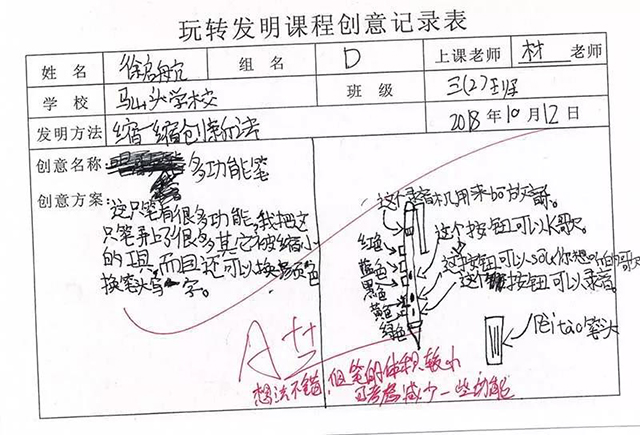 玩转发明课程创意记录表
姓 名 徐启航 组 名 D 上课老师 林 老师
学 校 马山头学校 班 级 三(2)班
发明方法 缩一缩创新法 2018年10月12日
创意名称: 多功能笔
创意方案:
这只笔有很多功能,我把这
只笔弄上了很多其它的缩小
的工具,而且还可以换颜色
换笔头写字。
这个录音机用来bo放音乐。
这个按钮可以K歌
这按钮可以
这个按钮可以录音。
红色
蓝色
黑色
黄色
绿色
pèi tào笔头
A++
想法不错,但笔的体积较小
可考虑减少一些功能